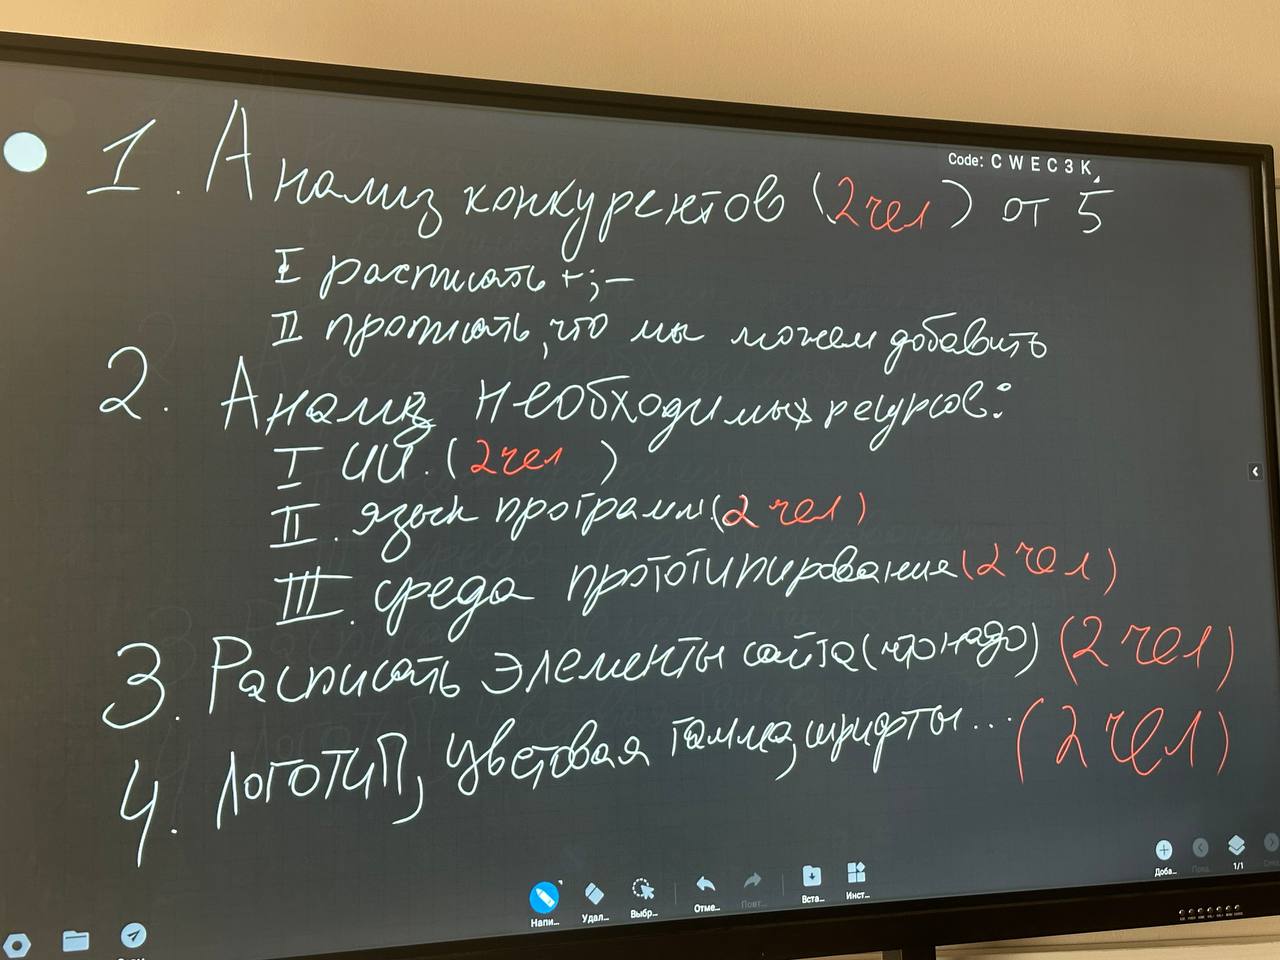 Code: C W E C 3 K
1. Анализ конкурентов (2 чел) от 5
I расписать +; -
II прописать, что мы можем добавить
2. Анализ необходимых ресурсов:
I ИИ. (2 чел)
II. язык программ. (2 чел)
III. среда прототипирования (2 чел)
3. Расписать элементы сайта (что надо) (2 чел)
4. Логотип, цветовая гамма, шрифты... (2 чел)
Напи... Удал... Выбр... Отме... Повт... Вста... Инст... Доба... 1/1